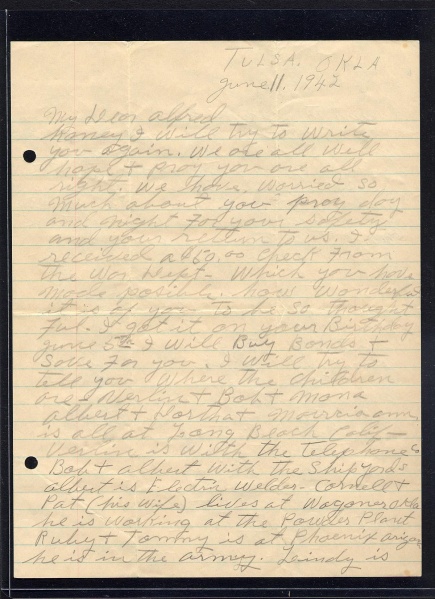 TULSA. OKLA
June 11. 1942
My Dear Alfred
Honey I will try to write
you again. We are all well
hope + pray you are all
right. We have worried so
much about you pray day
and night for your safety
and your return to us. I
received a $60.00 check from
the War Dept- Which you have
made posible. how Wonderful
it is of you to be so thought
ful. I got it on your Birthday
June 5th I Will Buy Bonds +
Save for you. I will try to
tell you Where the children
are- Verlin + Bob + Mona
albert + + 
is all at Long Beach Calif-
Verlin is With the Telephone Co
Bob + albert With the Ship Yards
albert is Electric Welder- Cornell +
Pat (his wife) lives at Wagoner Okla
he is working at the Powder Plant
Ruby + Tommy is at Phoenix Arizona
he is in the army. is